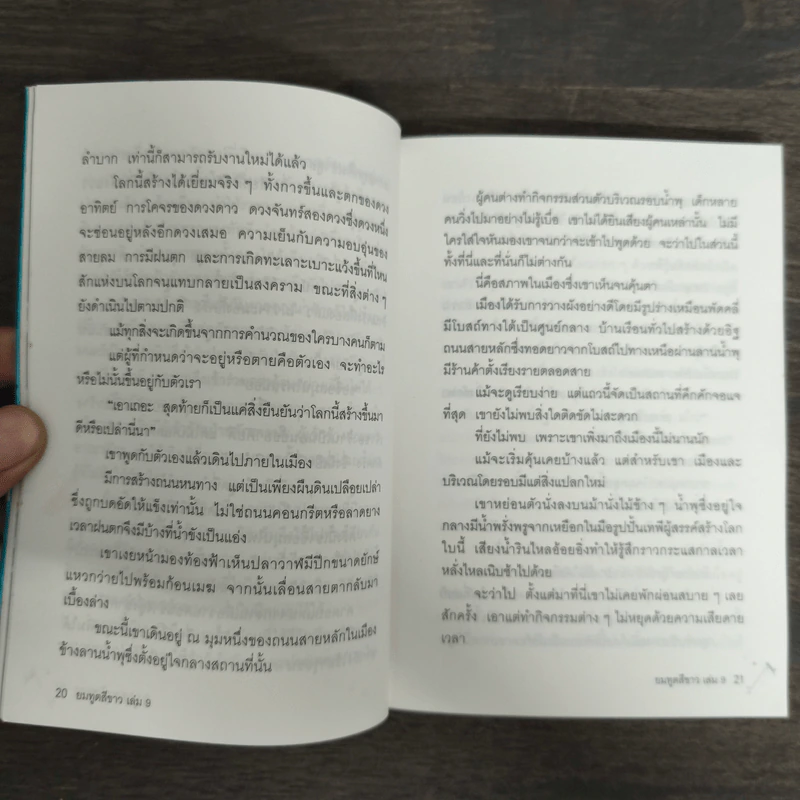 ลำบาก เท่านี้ก็สามารถรับงานใหม่ได้แล้ว
โลกนี้สร้างได้เยี่ยมจริง ๆ ทั้งการขึ้นและตกของดวง
อาทิตย์ การโคจรของดวงดาว ดวงจันทร์สองดวงซึ่งดวงหนึ่ง
จะซ่อนอยู่หลังอีกดวงเสมอ ความเย็นกับความอบอุ่นของ
สายลม การมีฝนตก และการเกิดทะเลาะเบาะแว้งขึ้นที่ไหน
สักแห่งบนโลกจนแทบกลายเป็นสงคราม ขณะที่สิ่งต่าง ๆ
ยังดำเนินไปตามปกติ
แม้ทุกสิ่งจะเกิดขึ้นจากการคำนวณของใครบางคนก็ตาม
แต่ผู้ที่กำหนดว่าจะอยู่หรือตายคือตัวเอง จะทำอะไร
หรือไม่นั้นขึ้นอยู่กับตัวเรา
"เอาเถอะ สุดท้ายก็เป็นแค่สิ่งยืนยันว่าโลกนี้สร้างขึ้นมา
ดีหรือเปล่านี่นา"
เขาพูดกับตัวเองแล้วเดินไปภายในเมือง
มีการสร้างถนนหนทาง แต่เป็นเพียงผืนดินเปลือยเปล่า
ซึ่งถูกบดอัดให้แข็งเท่านั้น ไม่ใช่ถนนคอนกรีตหรือลาดยาง
เวลาฝนตกจึงมีบ้างที่น้ำขังเป็นแอ่ง
เขาเงยหน้ามองท้องฟ้าเห็นปลาวาฬมีปีกขนาดยักษ์
แหวกว่ายไปพร้อมก้อนเมฆ จากนั้นเลื่อนสายตากลับมา
เบื้องล่าง
ขณะนี้เขาเดินอยู่ ณ มุมหนึ่งของถนนสายหลักในเมือง
ข้างลานน้ำพุซึ่งตั้งอยู่ใจกลางสถานที่นั้น
20 ยมทูตสีขาว เล่ม 9
ผู้คนต่างทำกิจกรรมส่วนตัวบริเวณรอบน้ำพุ เด็กหลาย
คนวิ่งไปมาอย่างไม่รู้เบื่อ เขาไม่ได้ยินเสียงผู้คนเหล่านั้น ไม่มี
ใครใส่ใจหันมองเขาจนกว่าจะเข้าไปพูดด้วย จะว่าไปในส่วนนี้
ทั้งที่นี่และที่นั่นก็ไม่ต่างกัน
นี่คือสภาพในเมืองซึ่งเขาเห็นจนคุ้นตา
เมืองได้รับการวางผังอย่างดีโดยมีรูปร่างเหมือนพัดคลี่
มีโบสถ์ทางใต้เป็นศูนย์กลาง บ้านเรือนทั่วไปสร้างด้วยอิฐ
ถนนสายหลักซึ่งทอดยาวจากโบสถ์ไปทางเหนือผ่านลานน้ำพุ
มีร้านค้าตั้งเรียงรายตลอดสาย
แม้จะดูเรียบง่าย แต่แถวนี้จัดเป็นสถานที่คึกคักจอแจ
ที่สุด เขายังไม่พบสิ่งใดติดขัดไม่สะดวก
ที่ยังไม่พบ เพราะเขาเพิ่งมาถึงเมืองนี้ไม่นานนัก
แม้จะเริ่มคุ้นเคยบ้างแล้ว แต่สำหรับเขา เมืองและ
บริเวณโดยรอบมีแต่สิ่งแปลกใหม่
เขาหย่อนตัวนั่งลงบนม้านั่งไม้ข้าง ๆ น้ำพุซึ่งอยู่ใจ
กลางมีน้ำพรั่งพรูจากเหยือกในมือรูปปั้นเทพีผู้สรรค์สร้างโลก
ใบนี้ เสียงน้ำรินไหลอ้อยอิ่งทำให้รู้สึกราวกระแสกาลเวลา
หลั่งไหลเนิบช้าไปด้วย
จะว่าไป ตั้งแต่มาที่นี่เขาไม่เคยพักผ่อนสบาย ๆ เลย
สักครั้ง เอาแต่ทำกิจกรรมต่าง ๆ ไม่หยุดด้วยความเสียดาย
เวลา
ยมทูตสีขาว เล่ม 9 21